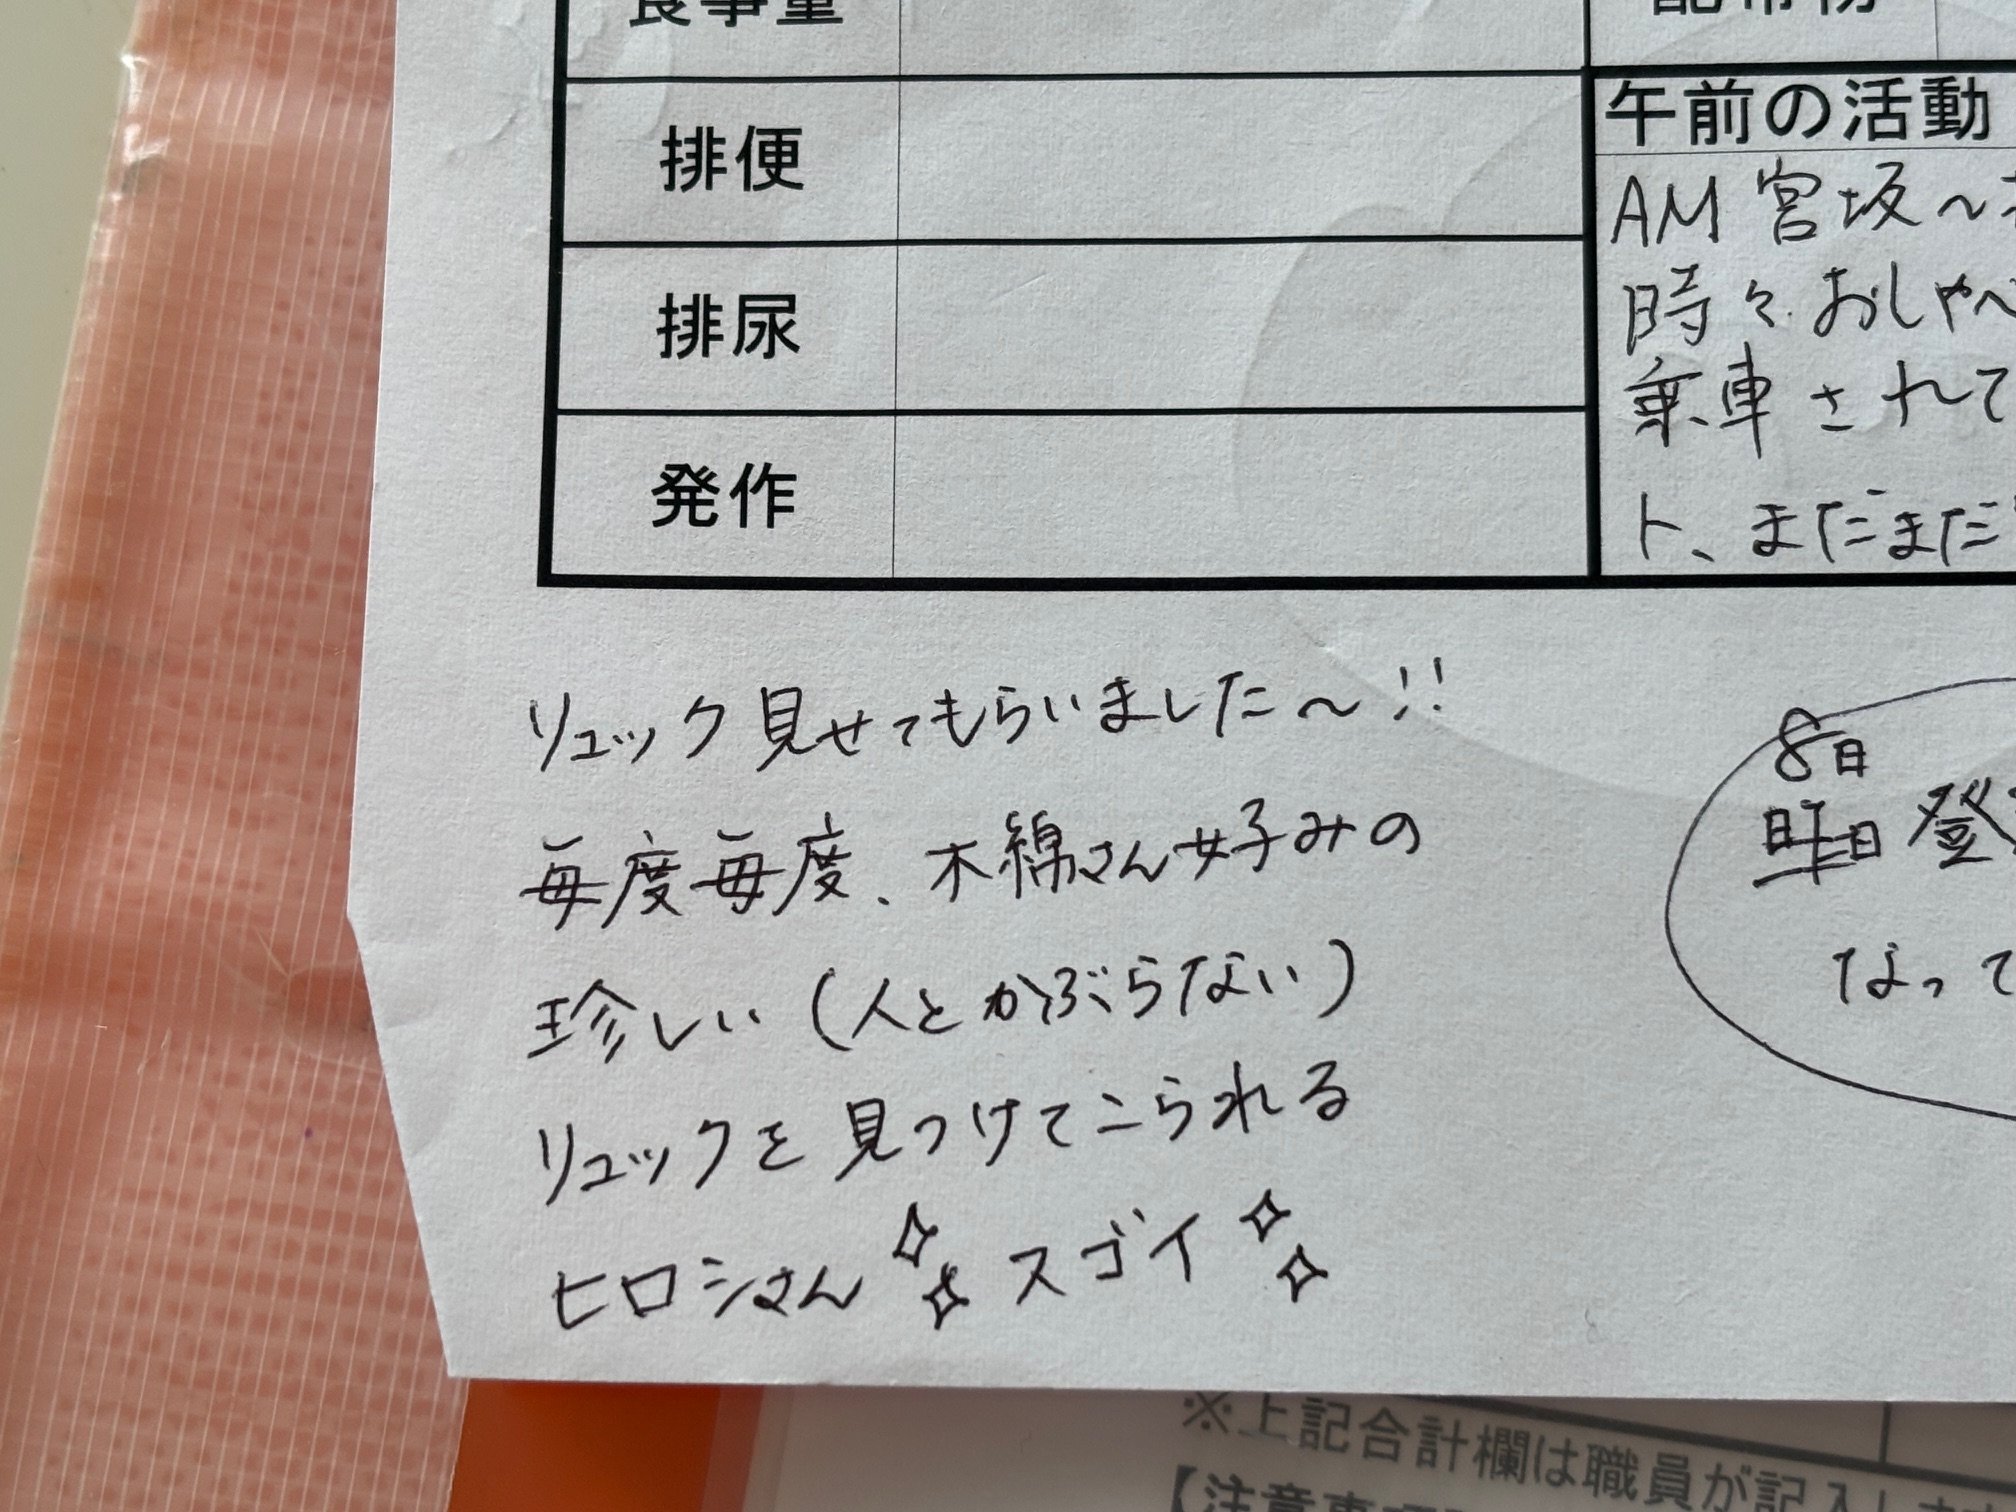 食事量
排便
排尿
発作
配布物
午前の活動
AM 宮坂〜
時々おしゃべ
乗車されて
ト、まだまだ
リュック見せてもらいました〜!!
毎度毎度、木綿さん好みの
珍しい(人とかぶらない)
リュックを見つけてこられる
ヒロシさん スゴイ
8日
昨日 登
なって
※上記合計欄は職員が記入
【注意事項